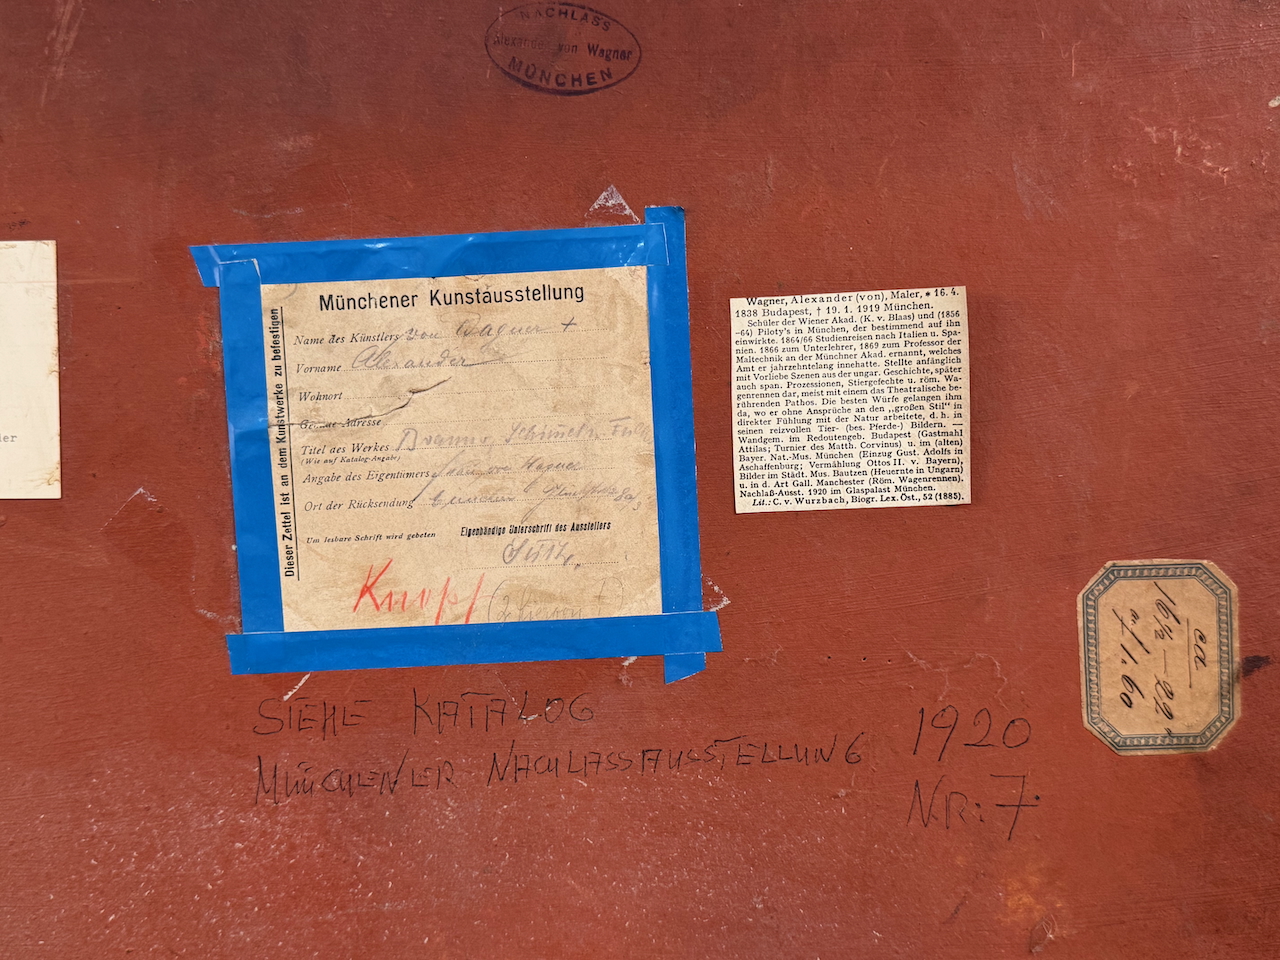 NACHLASS
Alexander von Wagner
MÜNCHEN
ler
Dieser Zettel ist an dem Kunstwerke zu befestigen
Münchener Kunstausstellung
Name des Künstlers von Wagner +
Vorname Alexander
Wohnort
Genaue Adresse
Titel des Werkes
(Wie auf Katalog-Angabe)
Angabe des Eigentümers von Wagner
Ort der Rücksendung
Um lesbare Schrift wird gebeten
Eigenhändige Unterschrift des Ausstellers
Knopf
Wagner, Alexander (von), Maler, * 16. 4.
1838 Budapest, † 19. 1. 1919 München.
Schüler der Wiener Akad. (K. v. Blaas) und (1856
–64) Piloty's in München, der bestimmend auf ihn
einwirkte. 1864/66 Studienreisen nach Italien u. Spa-
nien. 1866 zum Unterlehrer, 1869 zum Professor der
Maltechnik an der Münchner Akad. ernannt, welches
Amt er jahrzehntelang innehatte. Stellte anfänglich
mit Vorliebe Szenen aus der ungar. Geschichte, später
auch span. Prozessionen, Stiergefechte u. röm. Wa-
genrennen dar, meist mit einem das Theatralische be-
rührenden Pathos. Die besten Würfe gelangen ihm
da, wo er ohne Ansprüche an den „großen Stil" in
direkter Fühlung mit der Natur arbeitete, d. h. in
seinen reizvollen Tier- (bes. Pferde-) Bildern. —
Wandgem. im Redoutengeb. Budapest (Gastmahl
Attilas; Turnier des Matth. Corvinus) u. im (alten)
Bayer. Nat.-Mus. München (Einzug Gust. Adolfs in
Aschaffenburg; Vermählung Ottos II. v. Bayern),
Bilder im Städt. Mus. Bautzen (Heuernte in Ungarn)
u. in d. Art Gall. Manchester (Röm. Wagenrennen).
Nachlaß-Ausst. 1920 im Glaspalast München.
Lit.: C. v. Wurzbach, Biogr. Lex. Öst., 52 (1885).
ca
16½ — 22
auf 1.60
SIEHE KATALOG
MÜNCHENER NACHLASSAUSSTELLUNG 1920
NR: 7.